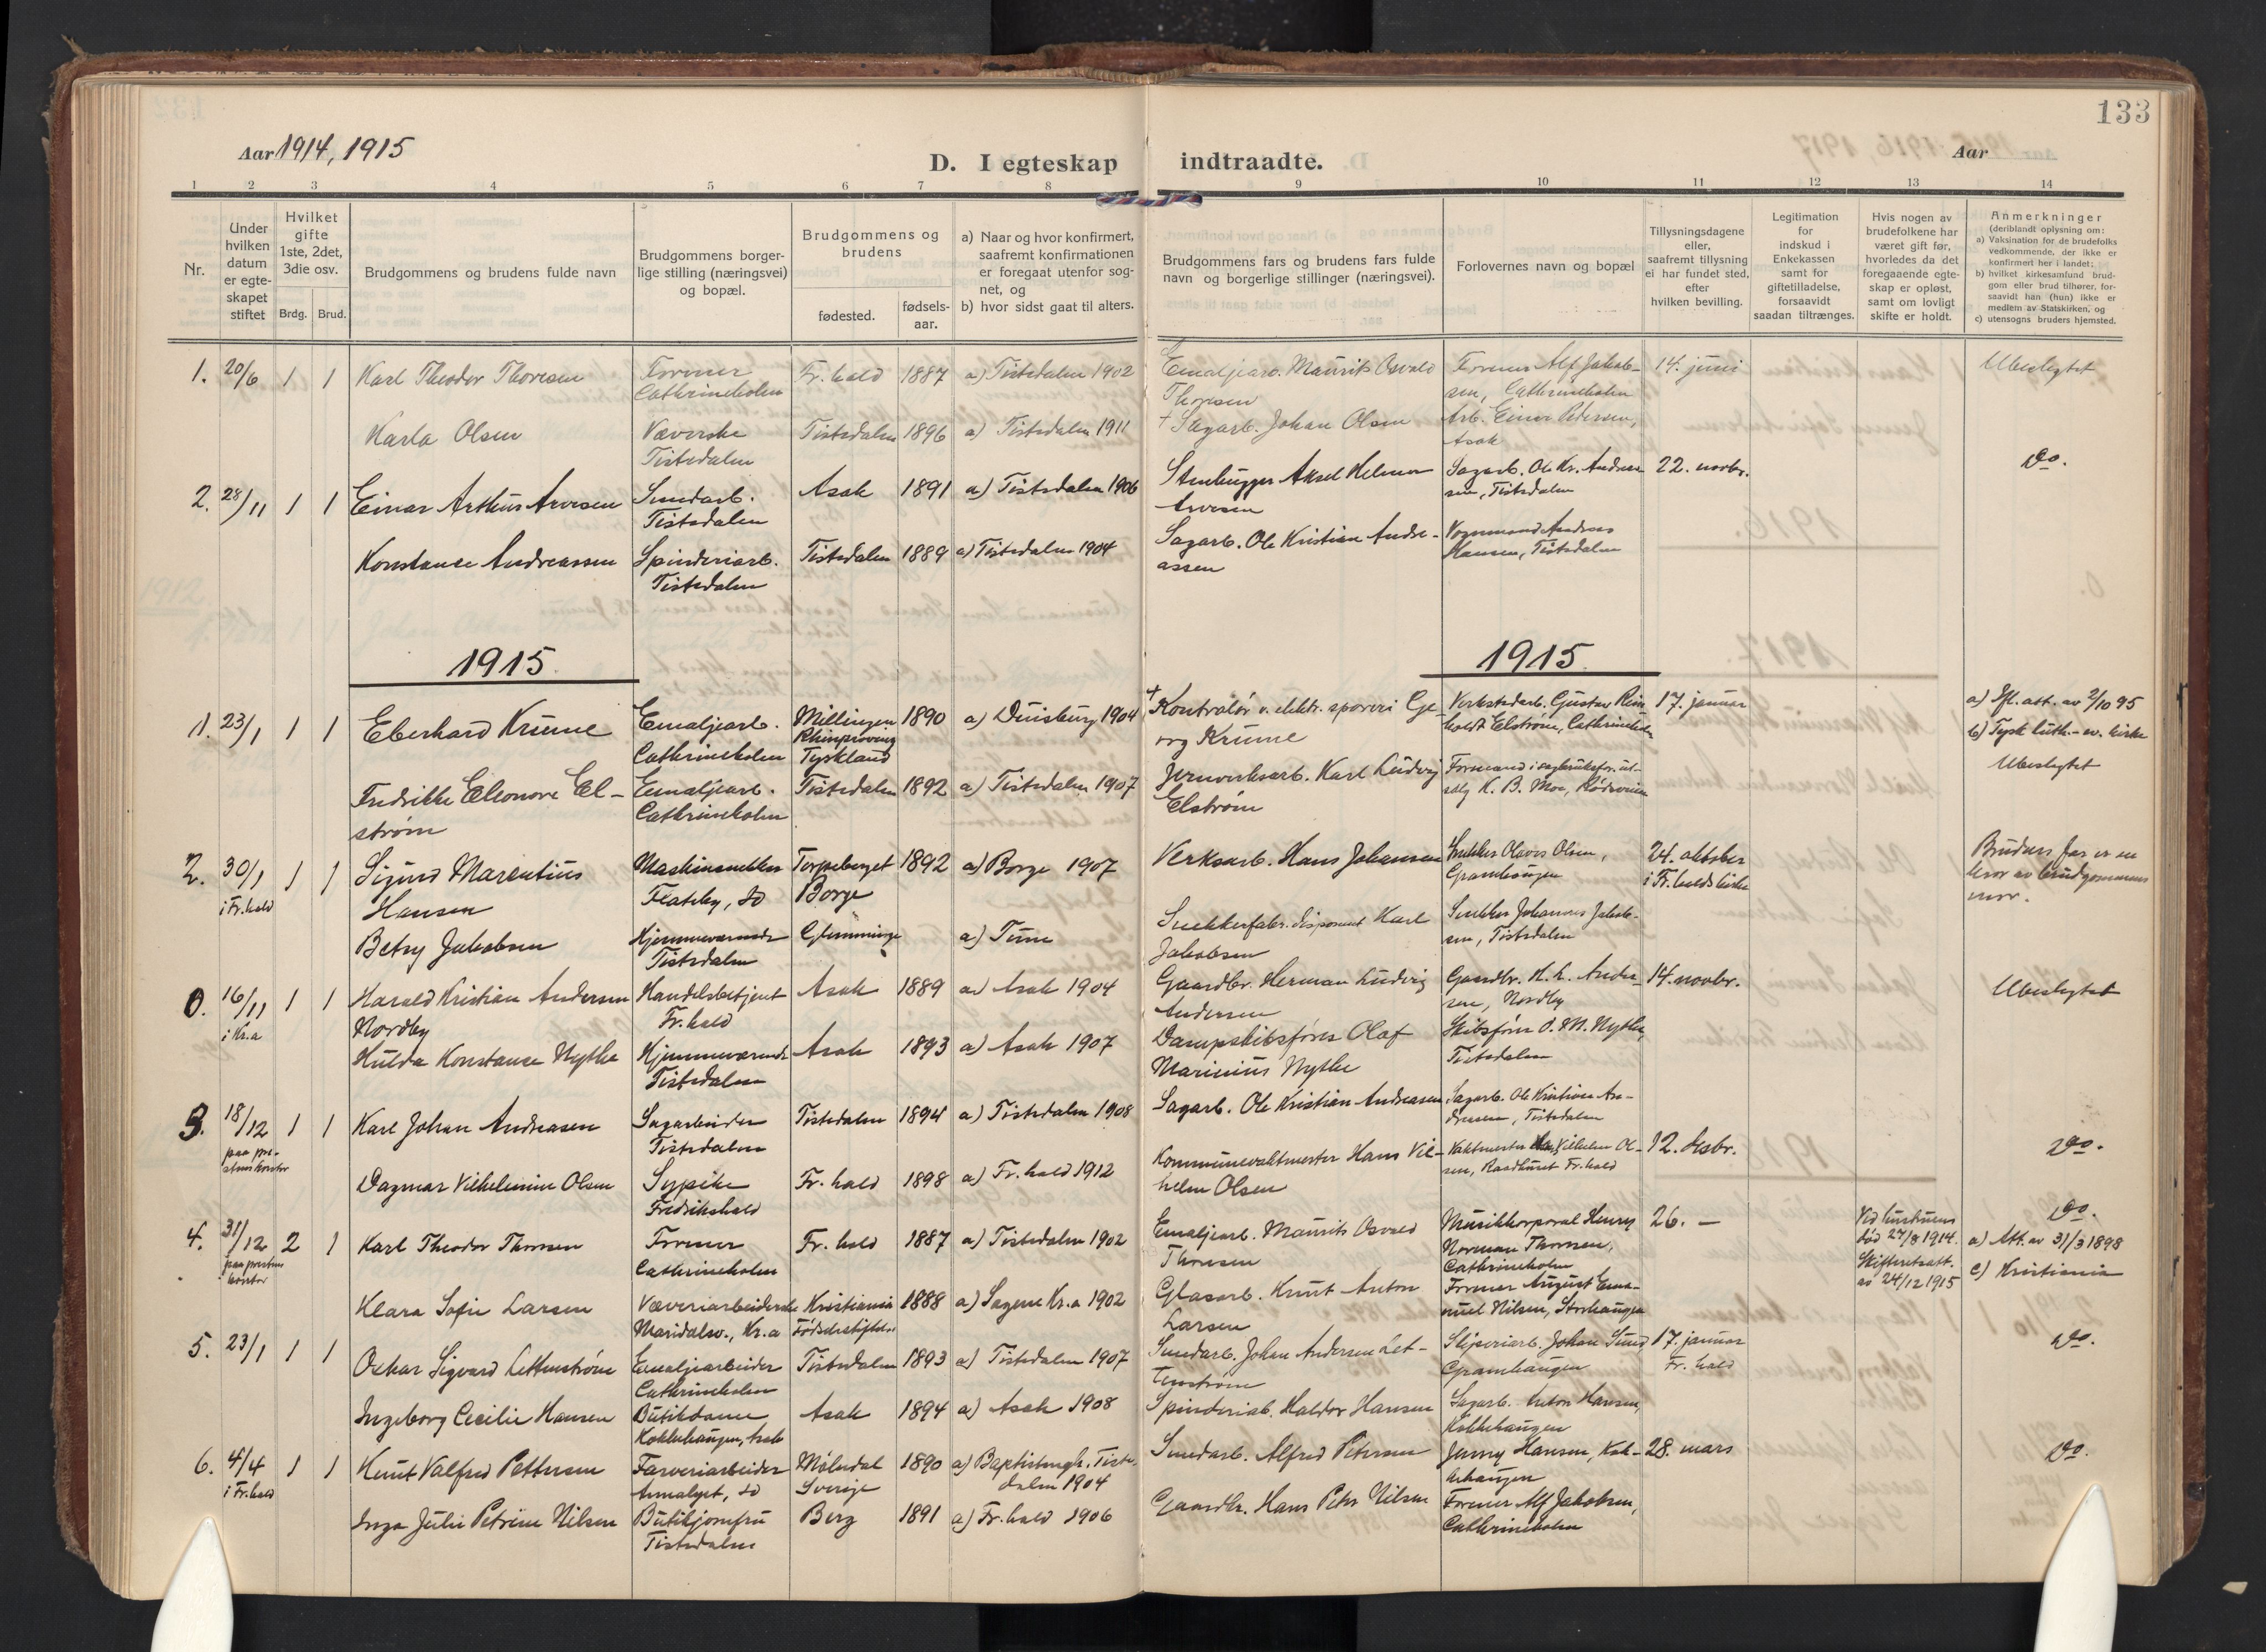 133
Aar 1914, 1915
D. I egteskap indtraadte.
Aar
1 2 3 4 5 6 7 8 9 10 11 12 13 14
Nr.
Under hvilken datum er egteskapet stiftet
Hvilket gifte 1ste, 2det, 3die osv.
Brdg. Brud.
Brudgommens og brudens fulde navn
Brudgommens borgerlige stilling (næringsvei) og bopæl.
Brudgommens og brudens
fødested.
fødselsaar.
a) Naar og hvor konfirmert, saafremt konfirmationen er foregaat utenfor sognet, og
b) hvor sidst gaat til alters.
Brudgommens fars og brudens fars fulde navn og borgerlige stillinger (næringsvei).
Forlovernes navn og bopæl
Tillysningsdagene eller, saafremt tillysning ei har fundet sted, efter hvilken bevilling.
Legitimation for indskud i Enkekassen samt for giftetilladelse, forsaavidt saadan tiltrænges.
Hvis nogen av brudefolkene har været gift før, hvorledes da det foregaaende egteskap er opløst, samt om lovligt skifte er holdt.
Anmerkninger (deriblandt oplysning om:
a) Vaksination for de brudefolks vedkommende, der ikke er konfirmert her i landet;
b) hvilket kirkesamfund brudgom eller brud tilhører, forsaavidt han (hun) ikke er medlem av Statskirken, og
c) utensogns bruders hjemsted.
1. 20/6 1 1 Karl Theodor Thoresen Former Cathrineholm Fr.hald 1887 a) Tistedalen 1902 Emaljearb. Maurits Osvald Thoresen Former Alf Jakobsen, Cathrineholm 14. juni Ubeslegtet
Karla Olsen Væverske Tistedalen Tistedalen 1896 a) Tistedalen 1911 + Sagarb. Johan Olsen Arb. Einar Pedersen, Asak
2. 28/11 1 1 Einar Arthur Arvesen Smedarb. Tistedalen Asak 1891 a) Tistedalen 1906 Stenhugger Aksel Helmer Arvesen Sagarb. Ole Kr. Andreassen, Tistedalen 22. novbr. Do.
Konstanse Andreassen Spinderiarb. Tistedalen Tistedalen 1889 a) Tistedalen 1904 Sagarb. Ole Kristian Andreassen Vognmand Andreas Hansen, Tistedalen
1915. 1915.
1. 23/1 1 1 Eberhard Krume Emaljearb. Cathrineholm Millingen Rhinproving Tyskland 1890 a) Duisburg 1904 + Kontrolør v. elektr. sporvei Georg Krume Verkstedarb. Gustav Reinholdt Elstrøm, Cathrineholm 17. januar a) Ifl. att. av 2/10 95
b) Tysk luth.-ev. kirke
Ubeslegtet
Fredrikke Eleonore Elstrøm Emaljearb. Cathrineholm Tistedalen 1892 a) Tistedalen 1907 Jernverksarb. Karl Ludvig Elstrøm Formand i sagbruksfor. utsalg K. B. Moe,
2. 30/1 i Fr.hald 1 1 Sigurd Marentius Hansen Maskinsnekker Flateby, do Torpeberget Borge 1892 a) Borge 1907 Verksarb. Hans Johansen Snekker Olaves Olsen, Gramhaugen 24. oktober i Fr.halds kirke Brudens far er en bror av brudgommens mor.
Betsy Jakobsen Hjemmeværende Tistedalen Glemminge a) Tune Snekkerfabr. disponent Karl Jakobsen Snekker Johannes Jakobsen, Tistedalen
0. 16/11 i Kr.a 1 1 Harald Kristian Andersen Nordby Handelsbetjent Fr.hald Asak 1889 a) Asak 1904 Gaardbr. Herman Ludvig Andersen Gaardbr. H. L. Andersen, Nordby 14. novbr. Ubeslegtet
Hulda Konstanse Nythe Hjemmeværende Tistedalen Asak 1893 a) Asak 1907 Dampskibsfører Olaf Marinius Nythe Skibsfører O. M. Nythe, Tistedalen
3. 18/12 paa prestens kontor 1 1 Karl Johan Andreasen Sagarbeider Tistedalen Tistedalen 1894 a) Tistedalen 1908 Sagarb. Ole Kristian Andreasen Sagarb. Ole Kristian Andreasen, Tistedalen 12. desbr. Do.
Dagmar Vilhelmine Olsen Sypike Fredrikshald Fr.hald 1898 a) Fr.hald 1912 Kommunevaktmester Hans Vilhelm Olsen Vaktmester Hans Vilhelm Olsen, Raadhuset Fr.hald
4. 31/12 paa prestens kontor 2 1 Karl Theodor Thoresen Former Cathrineholm Fr.hald 1887 a) Tistedalen 1902 Emaljearb. Maurits Osvald Thoresen Musikkorporal Henry Norman Thoresen, Cathrineholm 26. — Ved hustruens død 27/8 1914. Skifteretsatt. av 24/12 1915 Do.
a) Att. av 31/3 1898
c) Kristiania
Klara Sofie Larsen Væveriarbeiderske Maridalsv., Kr.a Kristiania Fødselsstiftelsen 1888 a) Sagene Kr.a 1902 Glasarb. Knut Anton Larsen Former August Emanuel Nilsen, Storhaugen
5. 23/1 1 1 Oskar Sigvard Lettenstrøm Emaljearbeider Cathrineholm Tistedalen 1893 a) Tistedalen 1907 Smedarb. Johan Andersen Lettenstrøm Sliperiarb. Johan Sund Gramhaugen 17. januar Fr.hald Do.
Ingeborg Cecilie Hansen Butikdame Kokkehaugen, Asak Asak 1894 a) Asak 1908 Spinderiarb. Haldor Hansen Sagarb. Anton Hansen, Kokkehaugen
6. 4/4 i Fr.hald 1 1 Knut Valfred Pettersen Farveriarbeider do Mølndal Sverige 1890 a) Baptistmgh. Tistedalen 1904 Smedarb. Alfred Petersen Jenny Hansen, Kokkehaugen 28. mars Do.
Inga Julie Petrine Nilsen Butikjomfru Tistedalen Berg 1891 a) Fr.hald 1906 Gaardbr. Hans Peter Nilsen Former Alf Jakobsen, Cathrineholm